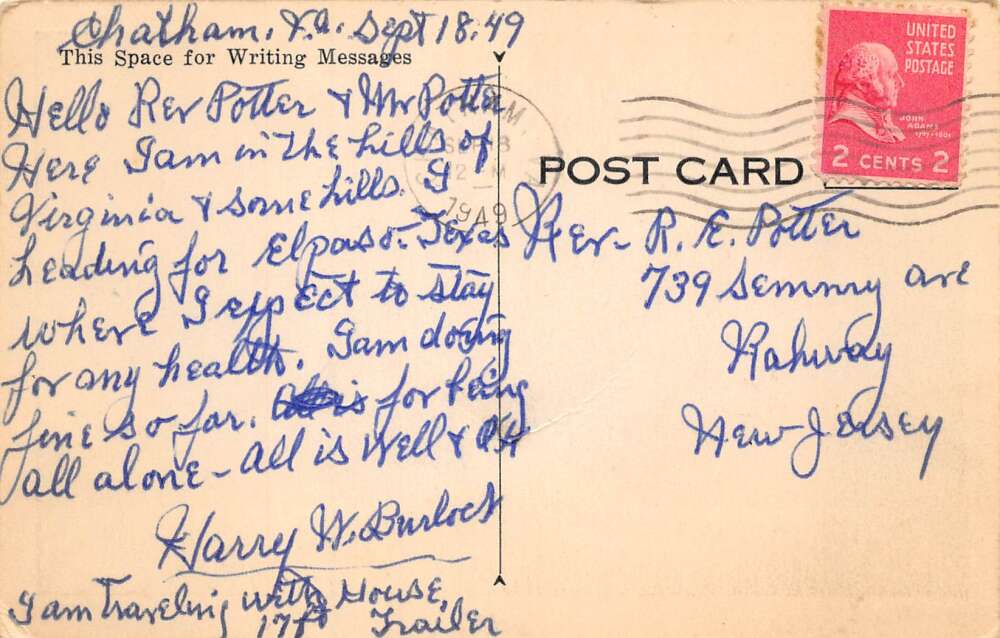 Chatham, Va. Sept 18. 49
This Space for Writing Messages
Hello Rev Potter & Mr Potter
Here I am in The hills of
Virginia & some hills. I
heading for Elpaso-Texas
where I expect to stay
for any health. I am doing
fine so far. is for being
all alone - all is well & OK
Harry W. Burlock
I am Traveling with House,
17ft Trailer
1949
POST CARD
UNITED
STATES
POSTAGE
JOHN
ADAMS
1797-1801
2 CENTS 2
Rev- R. E. Potter
739 Semnry ave
Rahway
New Jersey